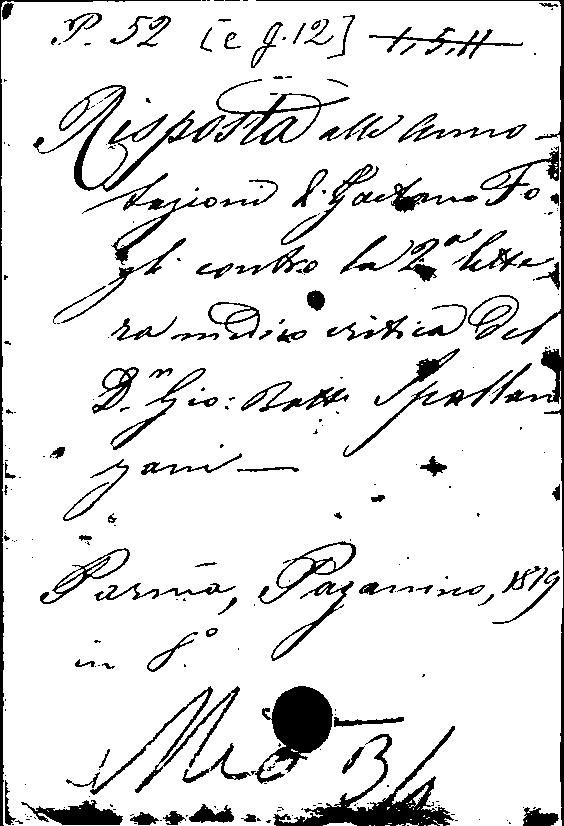 P. 52 [e g. 12] 1, 5, 11
Risposta alle Anno-
tazioni di Gaetano Fo
gli contro la 2ª lette
ra medico critica del
D.ⁿ Gio: Batt. Spallan
zani —
Parma, Paganino, 1819
in 8.º